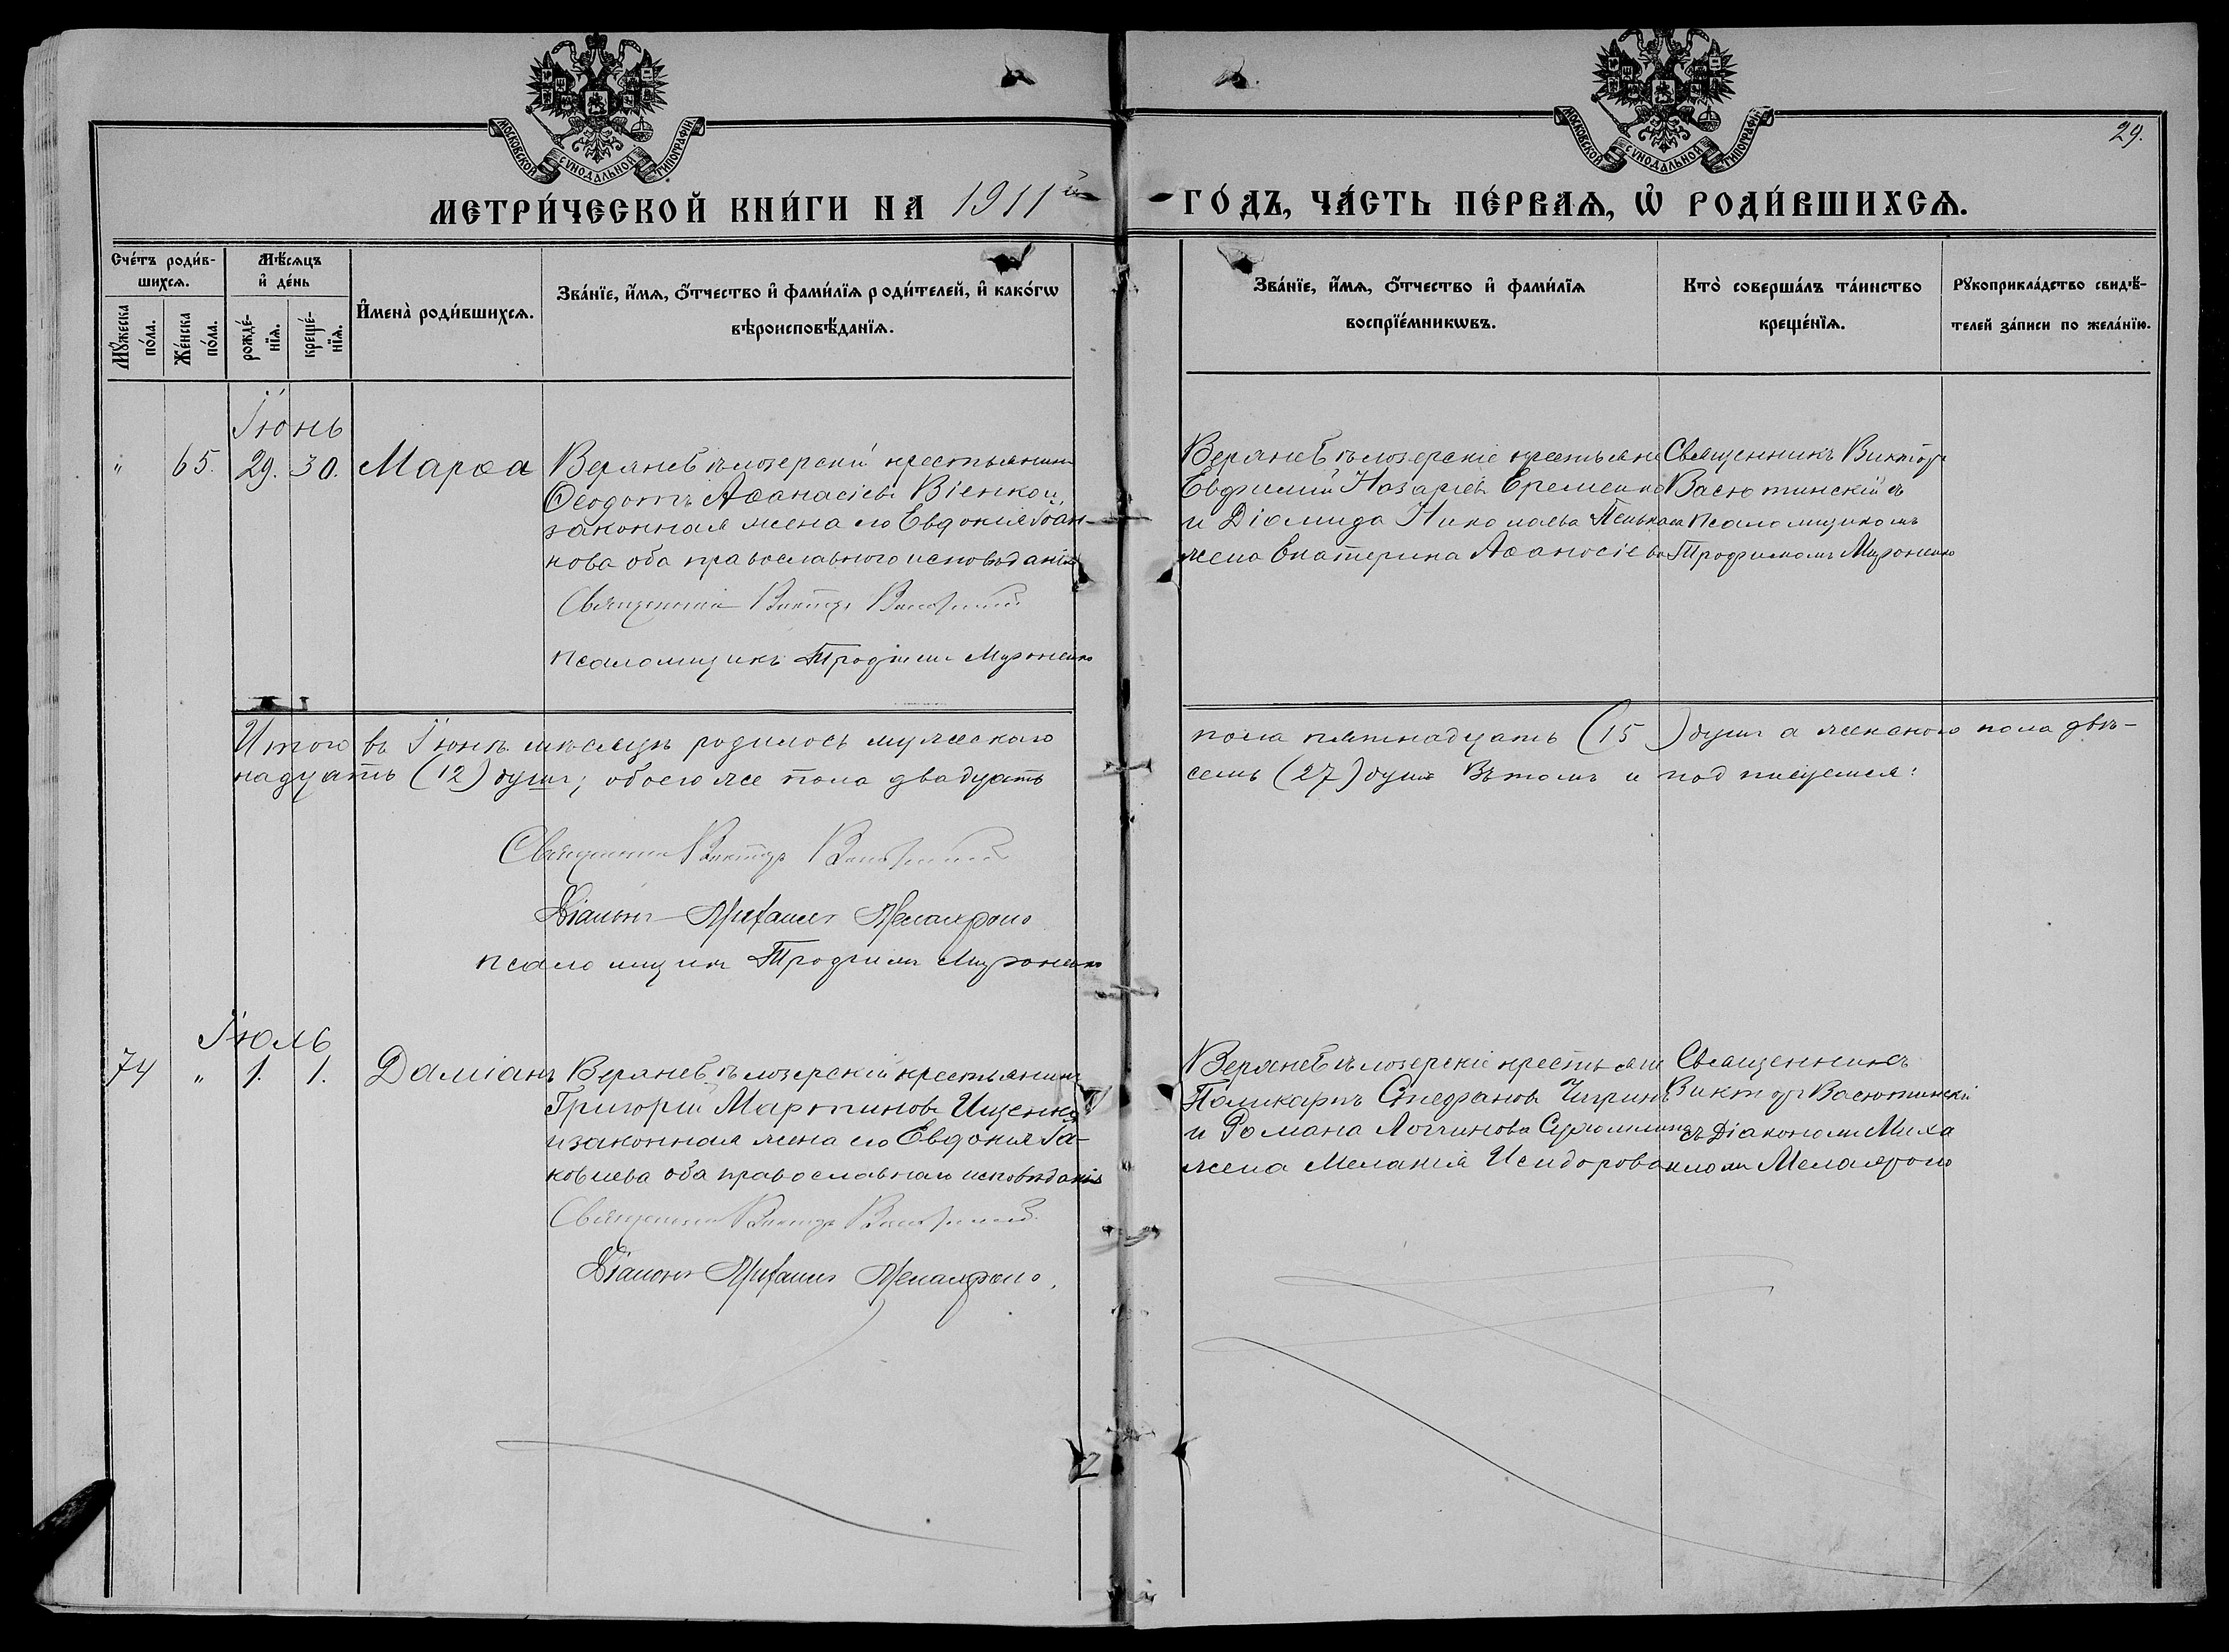 МОСКОВСКОЙ СѴНОДАЛЬНОЙ ТИПОГРАФІИ.
МОСКОВСКОЙ СѴНОДАЛЬНОЙ ТИПОГРАФІИ.
29.
МЕТРИ́ЧЕСКОЙ КНИ́ГИ НА 1911й ГО́ДЪ, ЧА́СТЬ ПЕ́РВАѦ, Ѡ҆ РОДИ́ВШИХСѦ.
Сче́тъ роди́в-
шихсѧ.
Мꙋ́жеска по́ла.
Же́нска по́ла.
Мѣ́сѧцъ
и҆ де́нь
рожде́-
нїѧ.
креще́-
нїѧ.
И҆мена̀ роди́вшихсѧ.
Зва́нїе, и҆́мѧ, ѻ҆́тчество и҆ фами́лїѧ роди́телей, и҆ како́гѡ
вѣроисповѣ́данїѧ.
Зва́нїе, и҆́мѧ, ѻ҆́тчество и҆ фами́лїѧ
воспрїе́мникѡвъ.
Кто̀ соверша́лъ та́инство
креще́нїѧ.
Рꙋкоприкла́дство свидѣ́-
телей за́писи по жела́нїю.
Іюнь
" 65. 29. 30. Марѳа
крестьянин
Ѳеодотъ Аѳанасіевъ
законная жена его Евдокія Іоан-
нова оба православного исповѣданія
Священникъ Викторъ Васютинскій
Псаломщикъ Трофимъ Мироненко
крестьяне
Евфимій Назаріевъ Еременко
и Діомида Николаева
жена Екатерина Аѳанасіева
Священникъ Викторъ
Васютинскій съ
псаломщикомъ
Трофимомъ Мироненко
Итого въ Іюнѣ мѣсяцѣ родилось мужеского пола пятнадцать (15) душъ а женского пола двѣ-
надцать (12) душъ; обоего же пола двадцать семь (27) душъ Въ томъ и подписуемся:
Священникъ Викторъ Васютинскій
Діаконъ Михаилъ
Псаломщикъ Трофимъ Мироненко
Іюль
74 " 1. 1. Даміанъ
крестьянинъ
Григорій Мартиновъ Ищенко
и законная жена его Евдокія Іа-
ковлева оба православнаго исповѣданія
Священникъ Викторъ Васютинскій
Діаконъ Михаилъ
крестьяне
Поликарпъ Стефановъ Чигринъ
и Романа Логгинова
жена Меланія Исидорова
Священникъ
Викторъ Васютинскій
съ Діакономъ Миха
иломъ